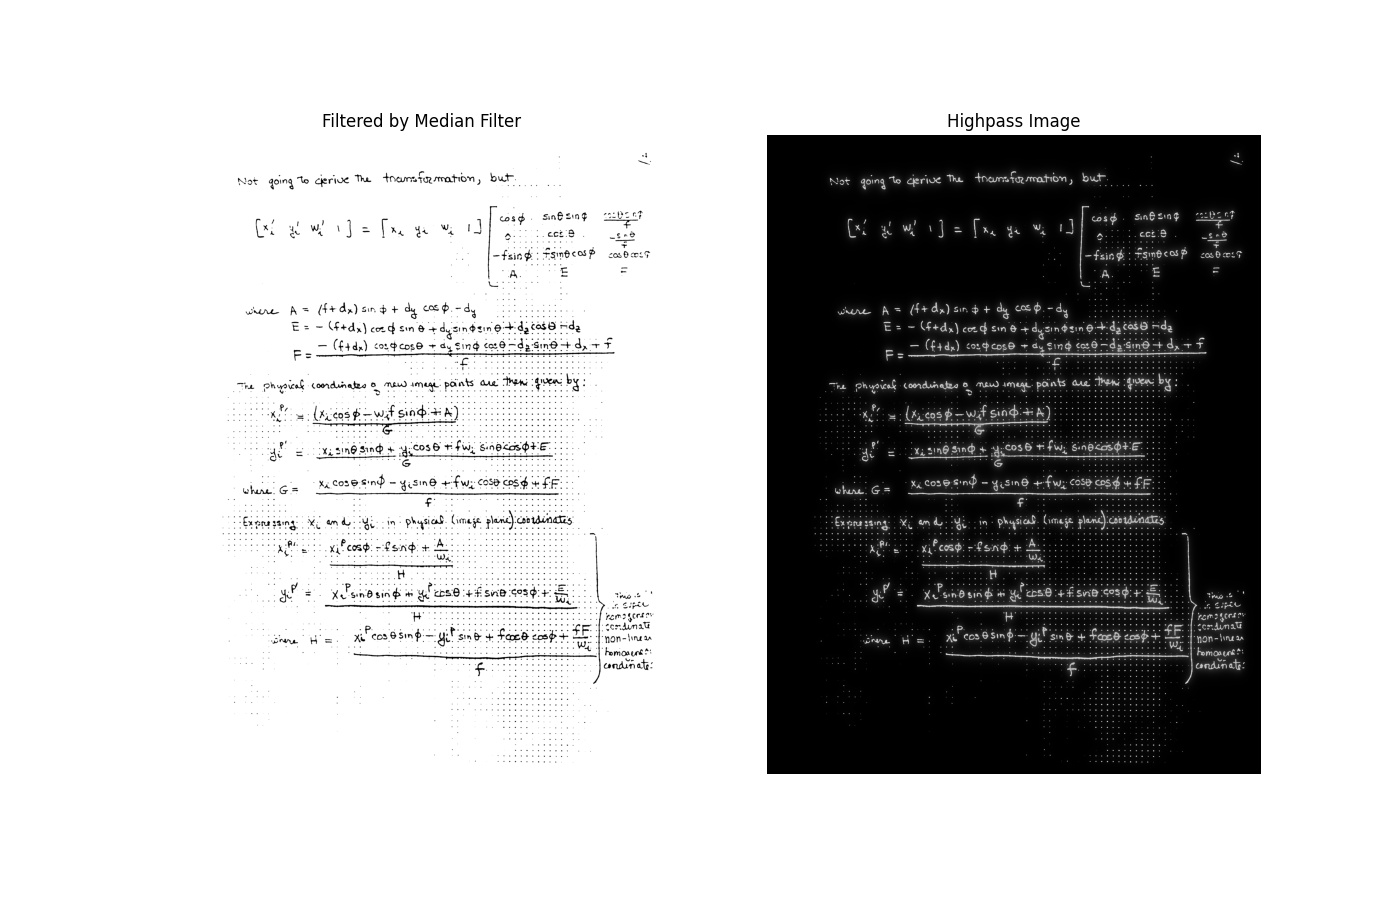 Filtered by Median Filter
Not going to derive the transformation, but
[xᵢ′ yᵢ′ wᵢ′ 1] = [xᵢ yᵢ wᵢ 1] [cosϕ sinθsinϕ
cosθ -sinθ/f
-fsinϕ fsinθcosϕ
A E
where A = (f+dₓ) sinϕ + d_y cosϕ - d_y
E = - (f+dₓ) cosϕ sinθ + d_y sinϕsinθ + d_z cosθ - d_z
F = (- (f+dₓ) cosϕcosθ + d_y sinϕ cosθ - d_z sinθ + dₓ + f) / f
The physical coordinates of new image points are then given by:
xᵢᵖ′ = (xᵢ cosϕ - wᵢf sinϕ + A) / G
yᵢᵖ′ = (xᵢ sinθsinϕ + yᵢ cosθ + fwᵢ sinθcosϕ + E) / G
where G = (xᵢ cosθsinϕ - yᵢ sinθ + fwᵢ cosθ cosϕ + fF) / f
Expressing xᵢ and yᵢ in physical (image plane) coordinates
xᵢᵖ′ = (xᵢᵖ cosϕ - fsinϕ + A/wᵢ) / H
yᵢᵖ′ = (xᵢᵖ sinθsinϕ + yᵢᵖ cosθ + f sinθ cosϕ + E/wᵢ) / H
where H = (xᵢᵖ cosθsinϕ - yᵢᵖ sinθ + fcosθ cosϕ + fF/wᵢ) / f
This is
non-linear
Highpass Image
Not going to derive the transformation, but
[xᵢ′ yᵢ′ wᵢ′ 1] = [xᵢ yᵢ wᵢ 1] [cosϕ sinθsinϕ
cosθ -sinθ/f
-fsinϕ fsinθcosϕ
A E
where A = (f+dₓ) sinϕ + d_y cosϕ - d_y
E = - (f+dₓ) cosϕ sinθ + d_y sinϕsinθ + d_z cosθ - d_z
F = (- (f+dₓ) cosϕcosθ + d_y sinϕ cosθ - d_z sinθ + dₓ + f) / f
The physical coordinates of new image points are then given by:
xᵢᵖ′ = (xᵢ cosϕ - wᵢf sinϕ + A) / G
yᵢᵖ′ = (xᵢ sinθsinϕ + yᵢ cosθ + fwᵢ sinθcosϕ + E) / G
where G = (xᵢ cosθsinϕ - yᵢ sinθ + fwᵢ cosθ cosϕ + fF) / f
Expressing xᵢ and yᵢ in physical (image plane) coordinates
xᵢᵖ′ = (xᵢᵖ cosϕ - fsinϕ + A/wᵢ) / H
yᵢᵖ′ = (xᵢᵖ sinθsinϕ + yᵢᵖ cosθ + f sinθ cosϕ + E/wᵢ) / H
where H = (xᵢᵖ cosθsinϕ - yᵢᵖ sinθ + fcosθ cosϕ + fF/wᵢ) / f
This is
non-linear